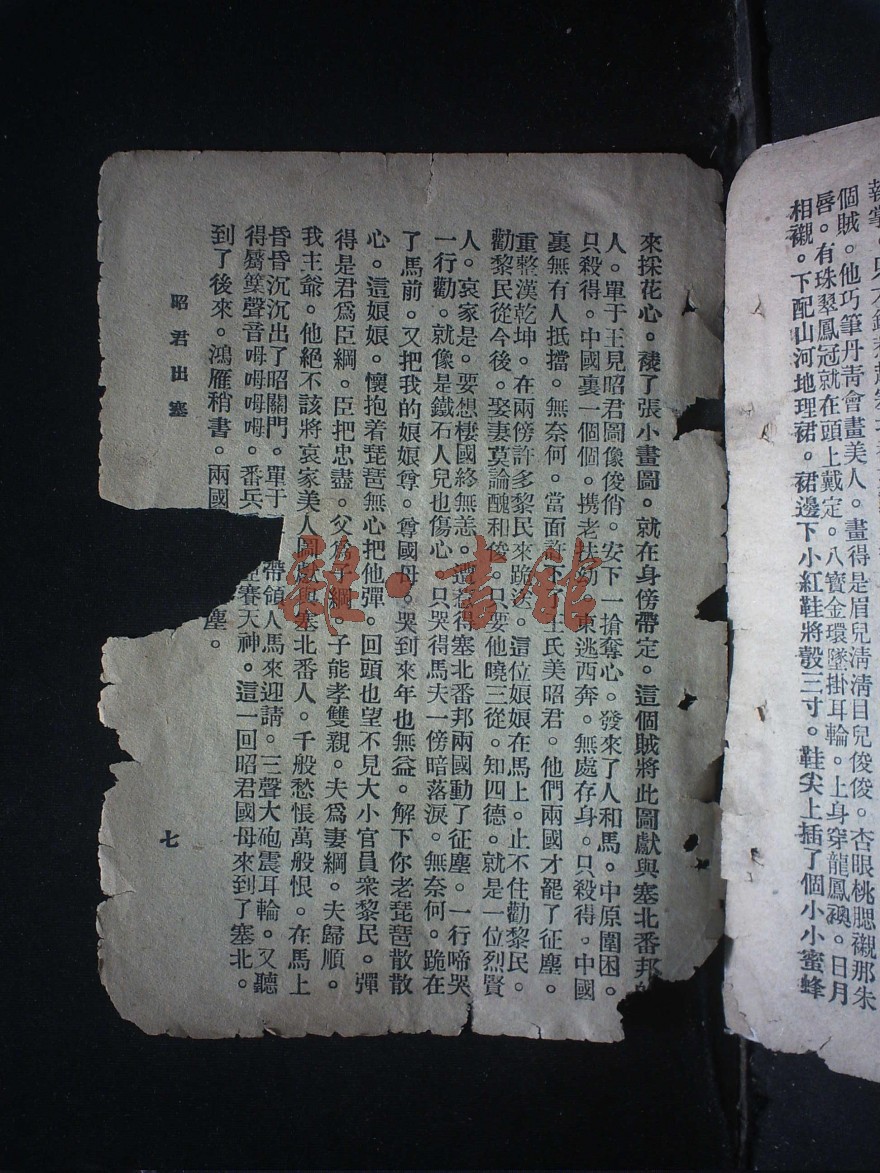 個賊。他巧筆丹靑會畫美人。畫得是眉兒淸淸目兒俊俊。杏眼桃腮襯那朱
唇。有珠翠鳳冠就在頭上戴定。八寶金環墜掛耳輪。上身穿龍鳳襖。日月
相襯。下配山河地理裙。裙邊下小紅鞋將彀三寸。鞋尖上插了個小小蜜蜂
來採花心。襓了張小畫圖。就在身傍帶定。這個賊將此圖獻與塞北番邦的
人。單于王見昭君圖像俊俏。安下一搶奪心。發來了人和馬。中原圍困。
只殺得。中國裏一個個。携老扶幼。東逃西奔。無處存身。只殺得。中國
裏無有人抵擋。無奈何。當面許下了王氏美昭君。他們兩國才罷了征塵。
重整漢乾坤。在兩傍許多黎民來跪送。這位娘娘在馬上。止不住勸黎民。
勸黎民從今後。娶妻莫論醜和俊。只要他曉三從。知四德。就是一位烈賢
人。哀家是。要想棲國終無恙。遭惹得塞北番邦兩國動了征塵。一行啼哭
一行勸。就像是鐵石人兒也傷心。只哭得馬夫一傍暗落淚。無奈何。跪在
了馬前。又把我的娘娘尊。尊國母。哭到來年也無益。解下你老琵琶散散
心。這娘娘。懷抱着琵琶無心把他彈。回頭也望不見大小官員衆黎民。彈
得是君爲臣綱。臣把忠盡。父爲子綱。子能孝雙親。夫爲妻綱。夫歸順。
我主爺。他絕不該將哀家美人圖獻與塞北番人。千般愁悵萬般恨。在馬上
昏昏沉沉出了昭關門。單于 帶領人馬來迎請。三聲大砲震耳輪。又聽
得觱篥聲音呣呣呣呣。番兵 賽天神。這一回昭君國母來到了塞北。
到了後來。鴻雁稍書。兩國 塵。
昭君出塞
七
雜·書館